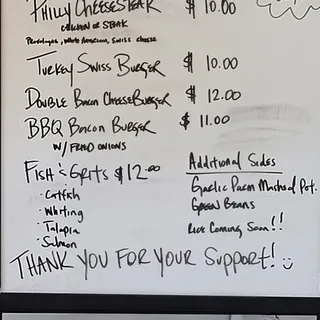 Philly CheeseSteak $ 10.00
Chicken or Steak
Provolone, White American, Swiss cheese
Turkey Swiss Burger $ 10.00
Double Bacon CheeseBurger $ 12.00
BBQ Bacon Burger $ 11.00
w/ Fried Onions
Fish & Grits $12.00
· Catfish
· Whiting
· Talapia
· Salmon
Additional Sides
Garlic Parm Mashed Pot.
Green Beans
Rice Coming Soon!!
THANK YOU FOR YOUR Support!